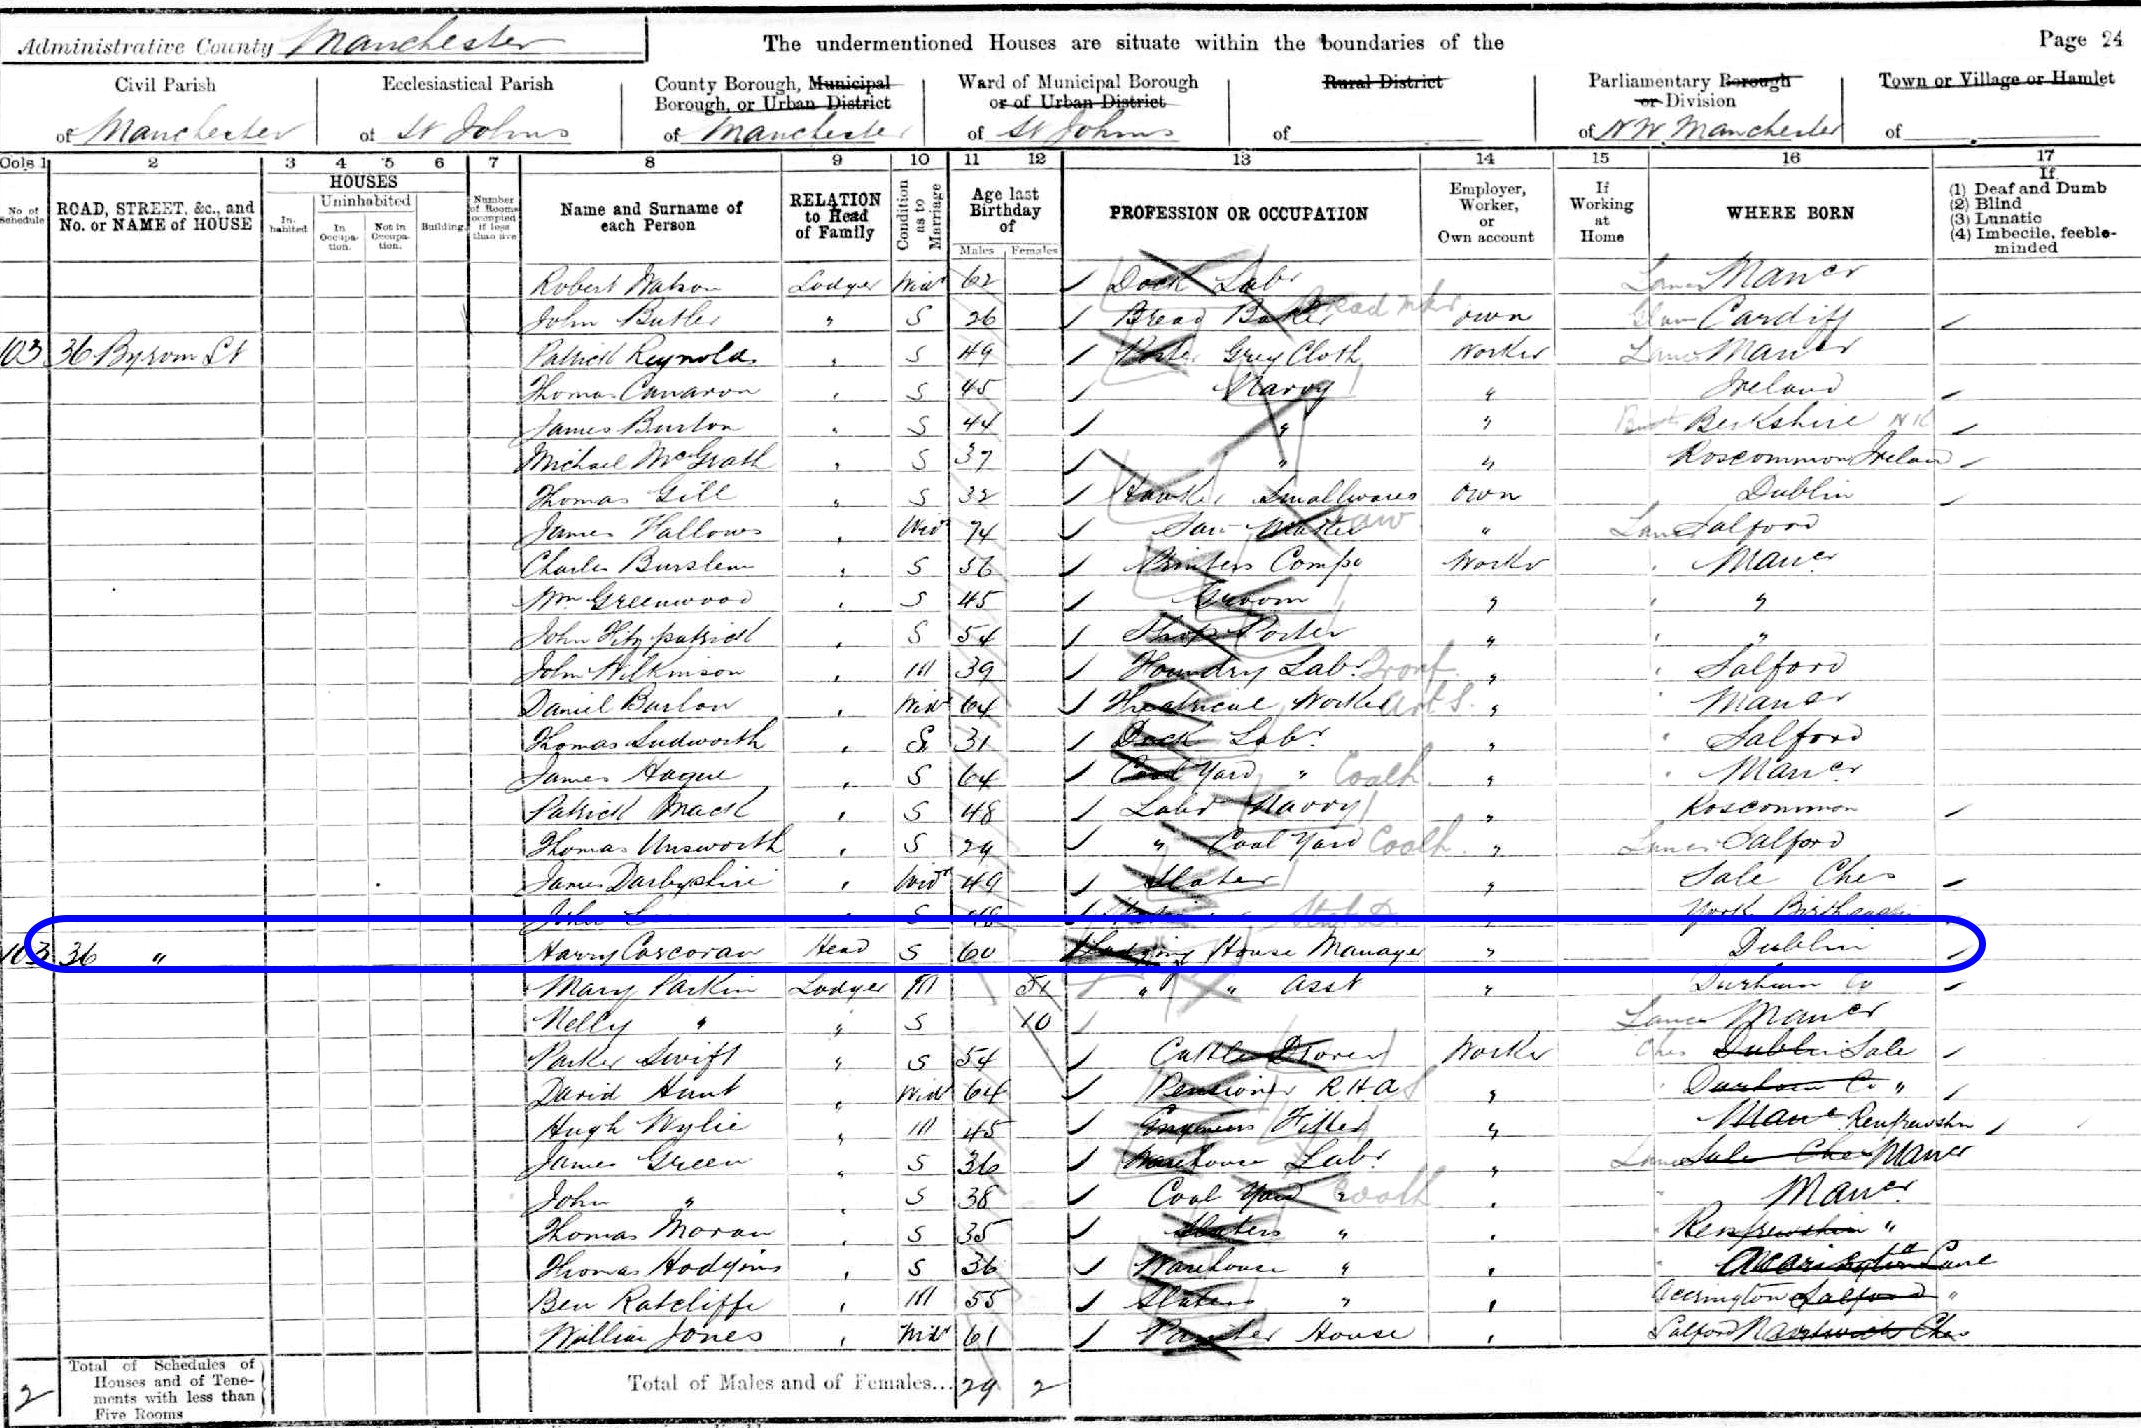 Administrative County Manchester The undermentioned Houses are situate within the boundaries of the Page 24
Civil Parish Ecclesiastical Parish County Borough, Municipal Borough, or Urban District Ward of Municipal Borough or of Urban District Rural District Parliamentary Borough or Division Town or Village or Hamlet
of Manchester of St Johns of Manchester of St Johns of of N W Manchester of
Cols. 1 2 3 4 5 6 7 8 9 10 11 12 13 14 15 16 17
No. of Schedule ROAD, STREET, &c., and No. or NAME of HOUSE HOUSES In-habited Uninhabited In Occupa-tion. Not in Occupa-tion. Building. Number of Rooms occupied if less than five Name and Surname of each Person RELATION to Head of Family Condition as to Marriage Age last Birthday of Males Females PROFESSION OR OCCUPATION Employer, Worker, or Own account If Working at Home WHERE BORN If (1) Deaf and Dumb (2) Blind (3) Lunatic (4) Imbecile, feeble-minded
Robert Watson Lodger Widr 62 Dock Labr Lancs Mancr
John Butler " S 26 Bread Baker Bread mkr own Glam Cardiff
103 36 Byrom St Patrick Reynolds " S 49 Porter Grey Cloth Worker Lancs Mancr
Thomas Canavan " S 45 Navvy " Ireland
James Burton " S 44 " " Berkshire
Michael McGrath " S 37 " " Roscommon Ireland
Thomas Gill " S 32 Hawker Smallwares own Dublin
James Hallows " Widr 74 Saw Maker Saw " Lancs Salford
Charles Burslem " S 56 Printers Comp Worker " Mancr
Wm Greenwood " S 45 Groom " " "
John Fitzpatrick " S 54 Shop Porter " " "
John Wilkinson " M 39 Foundry Labr " " Salford
Daniel Barlow " Widr 64 Theatrical Worker " " Mancr
Thomas Ludworth " S 31 Dock Labr " " Salford
James Hague " S 64 Coal Yard " Coalh " " Mancr
Patrick Mack " S 48 Labr Navvy " Roscommon
Thomas Unsworth " S 29 " Coal Yard Coalh " Lancs Salford
James Darbyshire " Widr 49 Slater " Sale Ches
John S 48 York
103 36 " Harry Corcoran Head S 60 Lodging House Manager " Dublin
Mary Parkin Lodger M 51 " " Asst " Durham Co
Nelly " " S 10 Lancs Mancr
Parker Swift " S 54 Cattle Drover Worker Ches Dublin Sale
David Hunt " Widr 64 Pensioner R H A " " Durham Co "
Hugh Wylie " M 45 Engineers Fitter " Manc Renfrewshr
James Green " S 36 Warehouse Labr " Lancs Sale Ches Mancr
John " " S 38 Coal Yard " Coalh " " Mancr
Thomas Moran " S 35 Slaters " " " Renfrewshire "
Thomas Hodgins " S 36 Warehouse " " " Accrington Lanc
Ben Ratcliffe " M 55 Slaters " " Accrington Salford "
William Jones " Widr 61 Painter House " Salford Nantwich Ches
2 Total of Schedules of Houses and of Tene-ments with less than Five Rooms Total of Males and of Females... 29 2